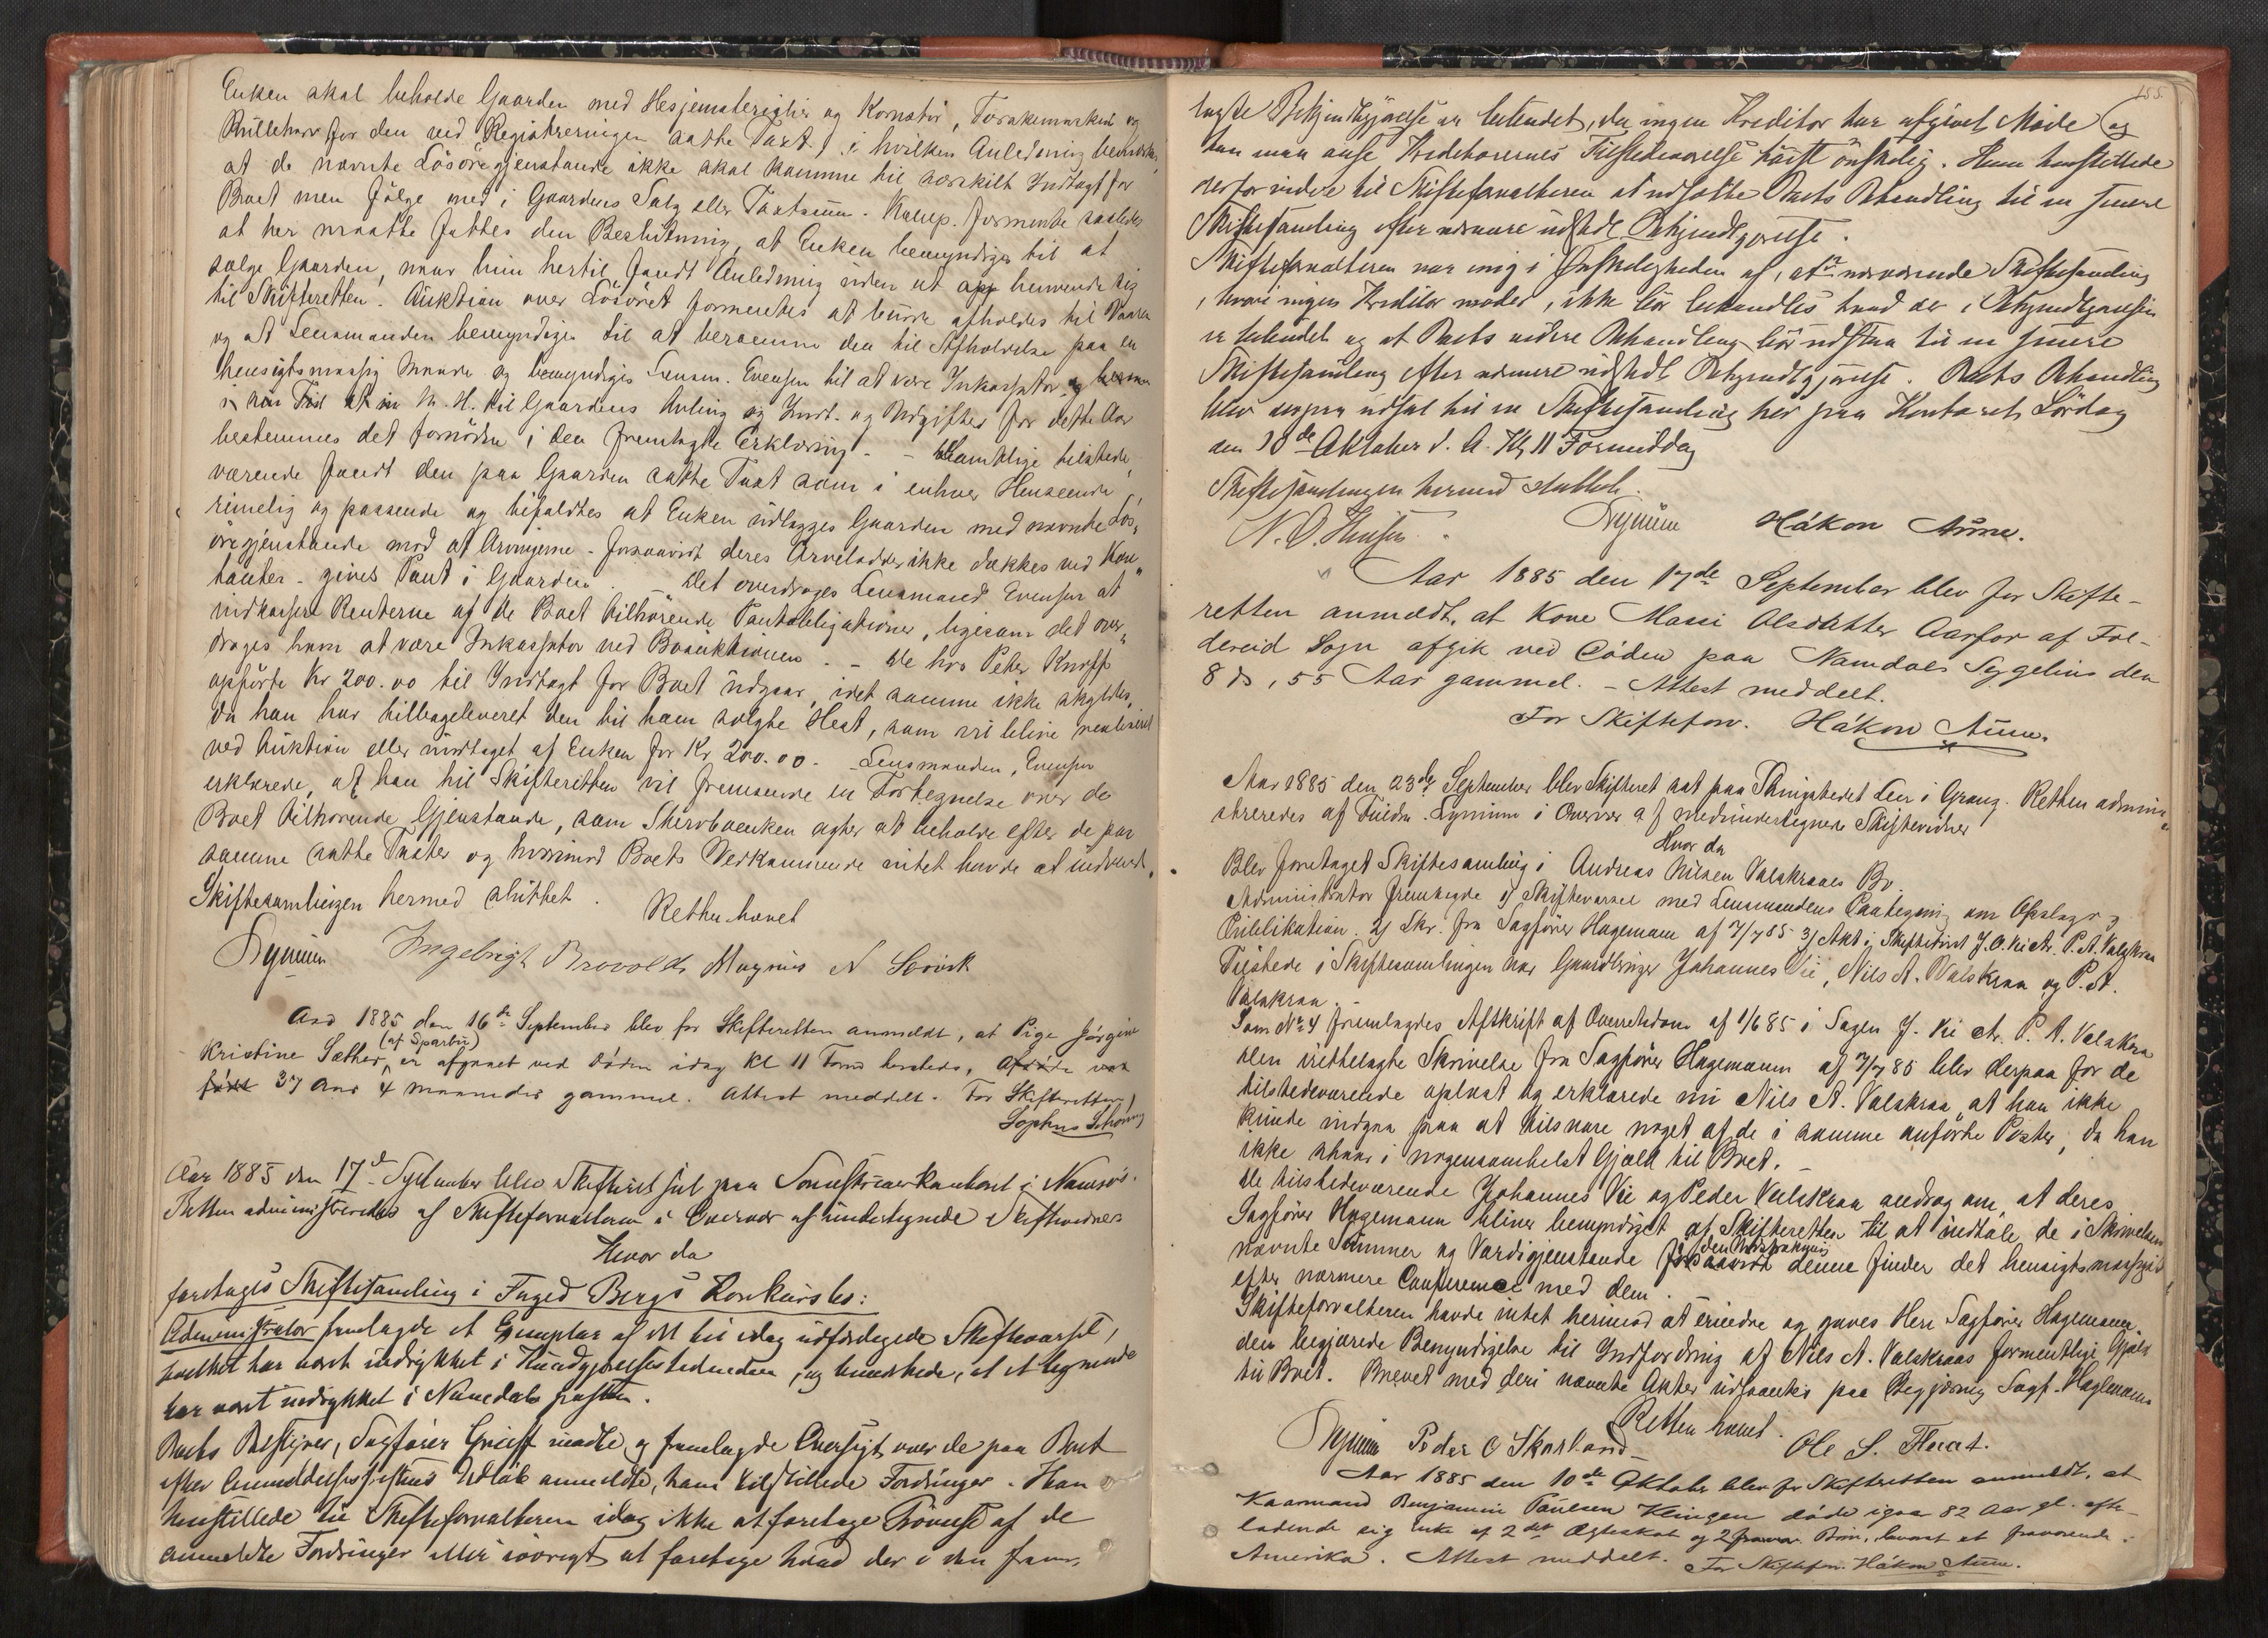 Enken skal beholde Gaarden med Hesjematerialier og Kornstør, Torskemærket og
Rulleharv for den ved Registreringen satte Taxt, i hvilken Anledning bemærkes,
at de nævnte Løsøregjenstande ikke skal komme til særskilt Indtægt for
Boet men følge med i Gaardens Salg eller Taxtsum. Kaup. formente saaledes
at her maatte fattes den Beslutning, at Enken bemyndiges til at
sælge Gaarden, naar hun hertil fandt Anledning uden at henvende sig
til Skifteretten. Auktion over Løsøret formentes at burde afholdes til Vaaren
og at Lensmanden bemyndiges til at beramme den til Afholdelse paa en
hensigtsmæssig Maade og bemyndiges Lensm. Evensen til at være Inkassator og
i sin Tid M. H. til Gaardens Avling og Indt. og Udgifter for dette Aar
bestemmes det fornødne i den fremlagte Erklæring. - Samtlige tilstede
værende fandt den paa Gaarden satte Taxt som i enhver Henseende
rimelig og passende og bifaldtes at Enken udlægges Gaarden med nævnte Løs„
øregjenstande mod at Arvingerne - forsaavidt deres Arvelodder ikke dækkes ved Kon„
tanter - gives Pant i Gaarden. - Det overdroges Lensmand Evensen at
indkassere Renterne af de Boet tilhørende Pantobligationer, ligesom det over„
droges ham at være Inkassator ved Boauktionen. - De hos Peter Knoff
opførte Kr 200.00 til Indtægt for Boet udgaar, idet samme ikke skyldes,
da han har tilbageleveret den til ham solgte Hest, som vil blive realiseret
ved Auktion eller modtaget af Enken for Kr 200.00. - Lensmanden, Evensen
erklærede, at han til Skifteretten vil fremsende en Fortegnelse over de
Boet tilhørende Gjenstande, som Skervboenken agter at beholde efter de paa
samme satte Taxter og hvorimod Boets Vedkommende intet havde at indvende.
Skiftesamlingen hermed sluttet.
Retten hævet
Lynum Ingebrigt Brovold Magnus A Sørvik
Aar 1885 den 16de September blev for Skifteretten anmeldt, at Pige Jørgine
(af Sparbu)
Kristine Sæther, er afgaaet ved Døden idag Kl 11 Form hersteds, Afdøde var
født 37 Aar 4 maaneder gammel. Attest meddelt. For Skifteretten,
Sophus Schøning
Aar 1885 den 17de September blev Skifteret sat paa Sorenskriverkontoret i Namsos.
Retten administreredes af Skifteforvalteren i Overvær af undertegnede Skiftevidner
Hvor da
foretoges Skiftesamling i Foged Bergs Konkursbo:
Administrator fremlagde et Exemplar af det til idag udfærdigede Skiftevarsel,
hvilket har været indrykket i Kundgjørelsestidenden, og bemærkede, at et lignende
har været indrykket i Namdalsposten.
Boets Bestyrer, Sagfører Grieff mødte og fremlagde Oversigt over de paa Boet
efter Anmeldelsesfristens Udløb anmeldte, ham tilstillede Fordringer. Han
henstillede til Skifteforvalteren idag ikke at foretage Prøvelse af de
anmeldte Fordringer eller iøvrigt at foretage hvad der i den frem-
155.
lagte Bekjendtgjørelse er betendet, da ingen Kreditor har afgivet Møde og
han maa anse Kreditorernes Tilstedeværelse høist ønskelig. Han henstillede
derfor videre til Skifteforvalteren at udsætte Boets Behandling til en senere
Skiftesamling efter nærmere udstedt Bekjendtgjørelse.
Skifteforvalteren var enig i Ønskeligheden af, at nærværende Skiftesamling
, hvori ingen Kreditor møder, ikke bør behandles hvad der i Bekjendtgjørelsen
er betendet og at Boets videre Behandling bør udstaa til en senere
Skiftesamling efter nærmere udstedt Bekjendtgjørelse. Boets Behandling
blev derpaa udsat til en Skiftesamling her paa Kontoret Lørdag
den 10de Oktober d. A. Kl 11 Formiddag
Skiftesamlingen hermed sluttet.
N. O. Hansen. Lynum Håkon Aune.
Aar 1885 den 17de September blev for Skifte-
retten anmeldt, at Kone Massi Olsdatter Aarfor af Fol-
dereid Sogn afgik ved Døden paa Namdals Sygehus den
8 ds, 55 Aar gammel. - Attest meddelt.
For Skifteforv. Håkon Aune.
Aar 1885 den 23de September blev Skifteret sat paa Thingstedet Leir i Grong. Retten admini„
streredes af Fuldm. Lynum i Overvær af medundertegnede Skiftevidner
Hvor da
Blev foretaget Skiftesamling i Andreas Nilsen Valskraaes Bo.
Administrator fremlagde 1) Skiftevarsel med Lensmandens Paategning om Opslag og
Publikation. 2) Skr. fra Sagfører Hagemann af 7/7 85 3) Akt i Skiftetvist J. O. Vie ctr. P. A. Valskraa
Tilstede i Skiftesamlingen var Gaardbruger Johannes Vie, Nils A. Valskraa og P. A.
Valskraa. -
Som No 4 fremlagdes Afskrift af Overretsdom af 1/6 85 i Sagen J. Vie ctr. P. A. Valskraa
Den irettelagte Skrivelse fra Sagfører Hagemann af 7/7 85 blev derpaa for de
tilstedeværende oplæst og erklærede nu Nils A. Valskraa, at han ikke
kunde indgaa paa at tilsvare noget af de i samme anførte Poster, da han
ikke staar i nogensomhelst Gjæld til Boet. -
De tilstedeværende Johannes Vie og Peder Valskraa androg om, at deres
Sagfører Hagemann bliver bemyndiget af Skifteretten til at indtale de i Skrivelsen
nævnte Summer og Værdigjenstande i den Udstrækning denne finder det hensigtsmæssigt
efter nærmere Conference med dem.
Skifteforvalteren havde intet herimod at erindre og gaves Herr Sagfører Hagemann
den begjærede Bemyndigelse til Indfordring af Nils A. Valskraas formentlige Gjæld
til Boet. Brevet med deri nævnte Akter udlaantes paa Begjæring Sagf. Hagemann
Retten hævet.
Lynum Peder O Skarland Ole S. Fløat.
Aar 1885 den 10de Oktober blev for Skifteretten anmeldt, at
Kaarmand Benjamin Paulsen Klingen døde igaar 82 Aar gl. efter-
ladende sig Enke af 2det Ægteskab og 2 Børn, hvoraf et fraværende i
Amerika. Attest meddelt. For Skifteforv. Håkon Aune.